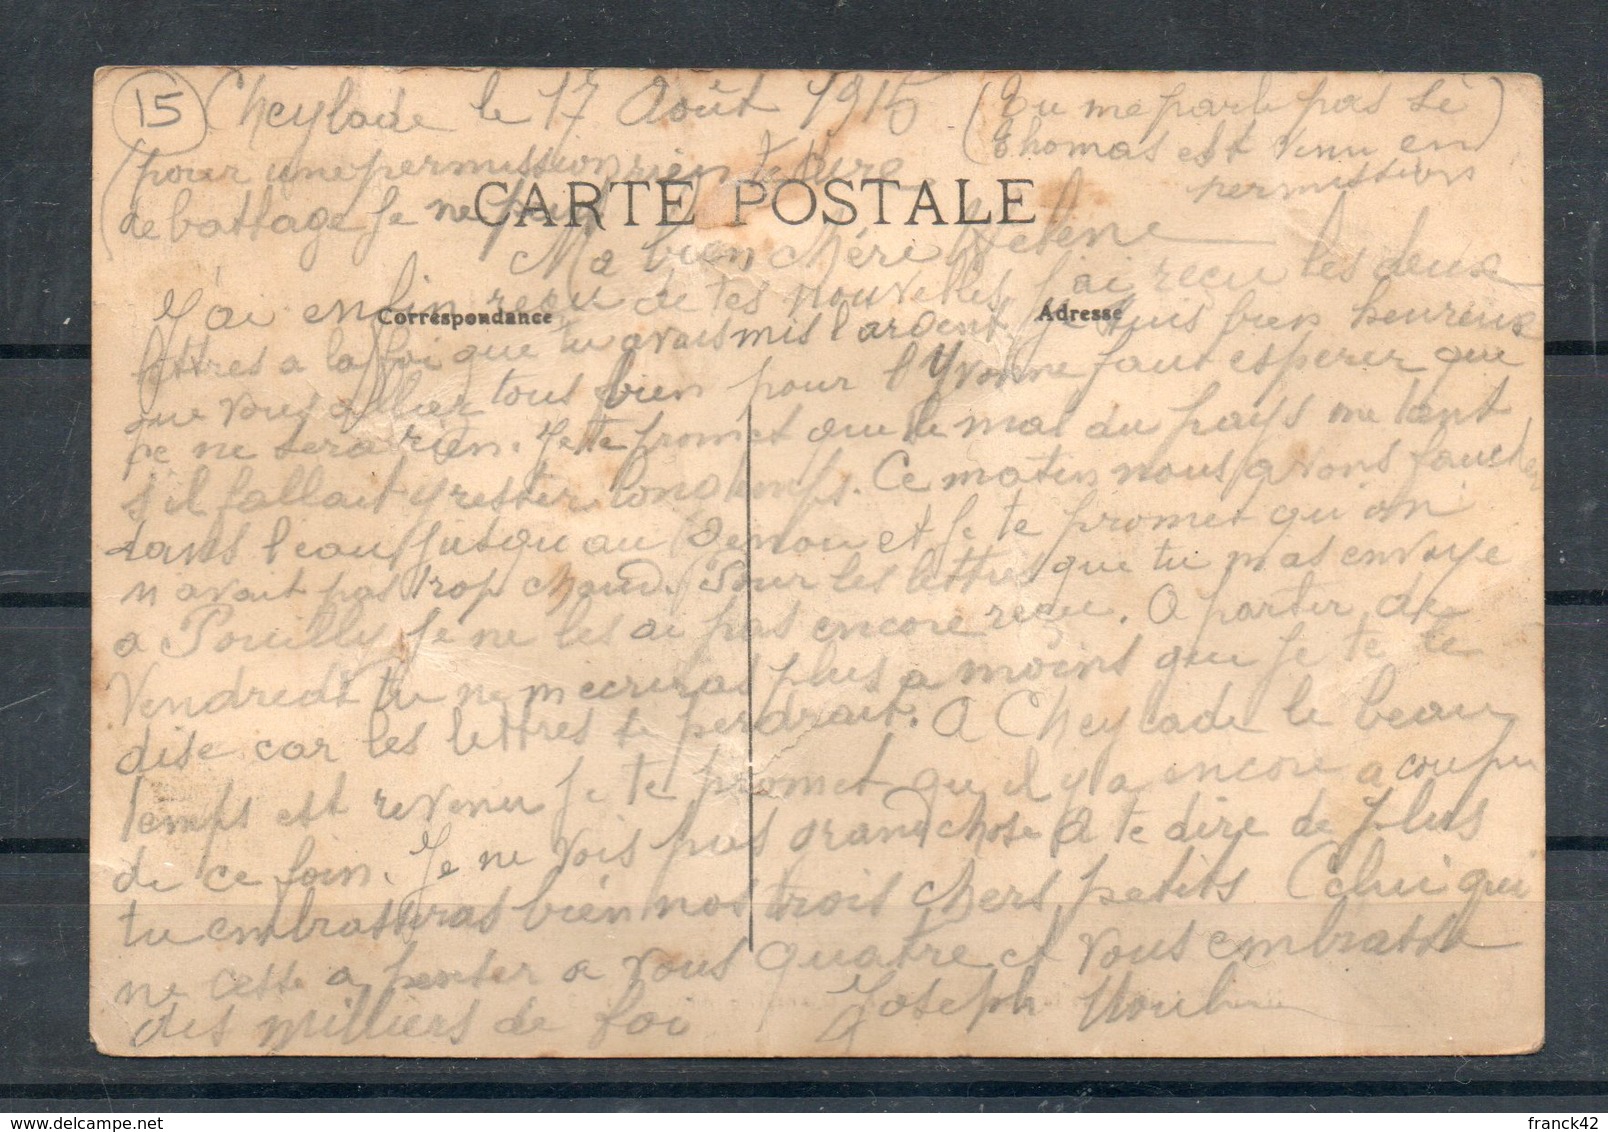 15
Cheylade le 17 Août 1915
(Tu me parle pas Si
Thomas est venu en)
permission
(pour une permission rien te dire
de battage Je ne peux
CARTE POSTALE
Ma bien chéri Helene
J'ai enfin reçu de tes nouvelles, J'ai reçu les deux
Correspondance
Adresse
lettres a la foi que tu avais mis l'argent, Je suis bien heureux
que vous allier tous bien pour l'Yvonne faut esperer que
ce ne sera rien. Je te promet que le mal du pays me tant
s'il fallait y rester longtemps. Ce matin nous avons faucher
dans l'eau jusqu au Genou et Je te promet qu'on
n avait pas trop chaud. Pour les lettres que tu m as envoye
a Pouilly Je ne les ai pas encore reçu. A partir de
Vendredi tu ne m ecriras plus a moins que Je te le
dise car les lettres se perdrait. A Cheylade le beau
temps est revenu Je te promet qu il y a encore a coupu
de ce foin. Je ne vois pas grand chose a te dire de plus
tu embrasseras bien nos trois chers petits Celui qui
ne cesse a penser a vous quatre et vous embrasse
des milliers de foi
Joseph Moulin
franck42